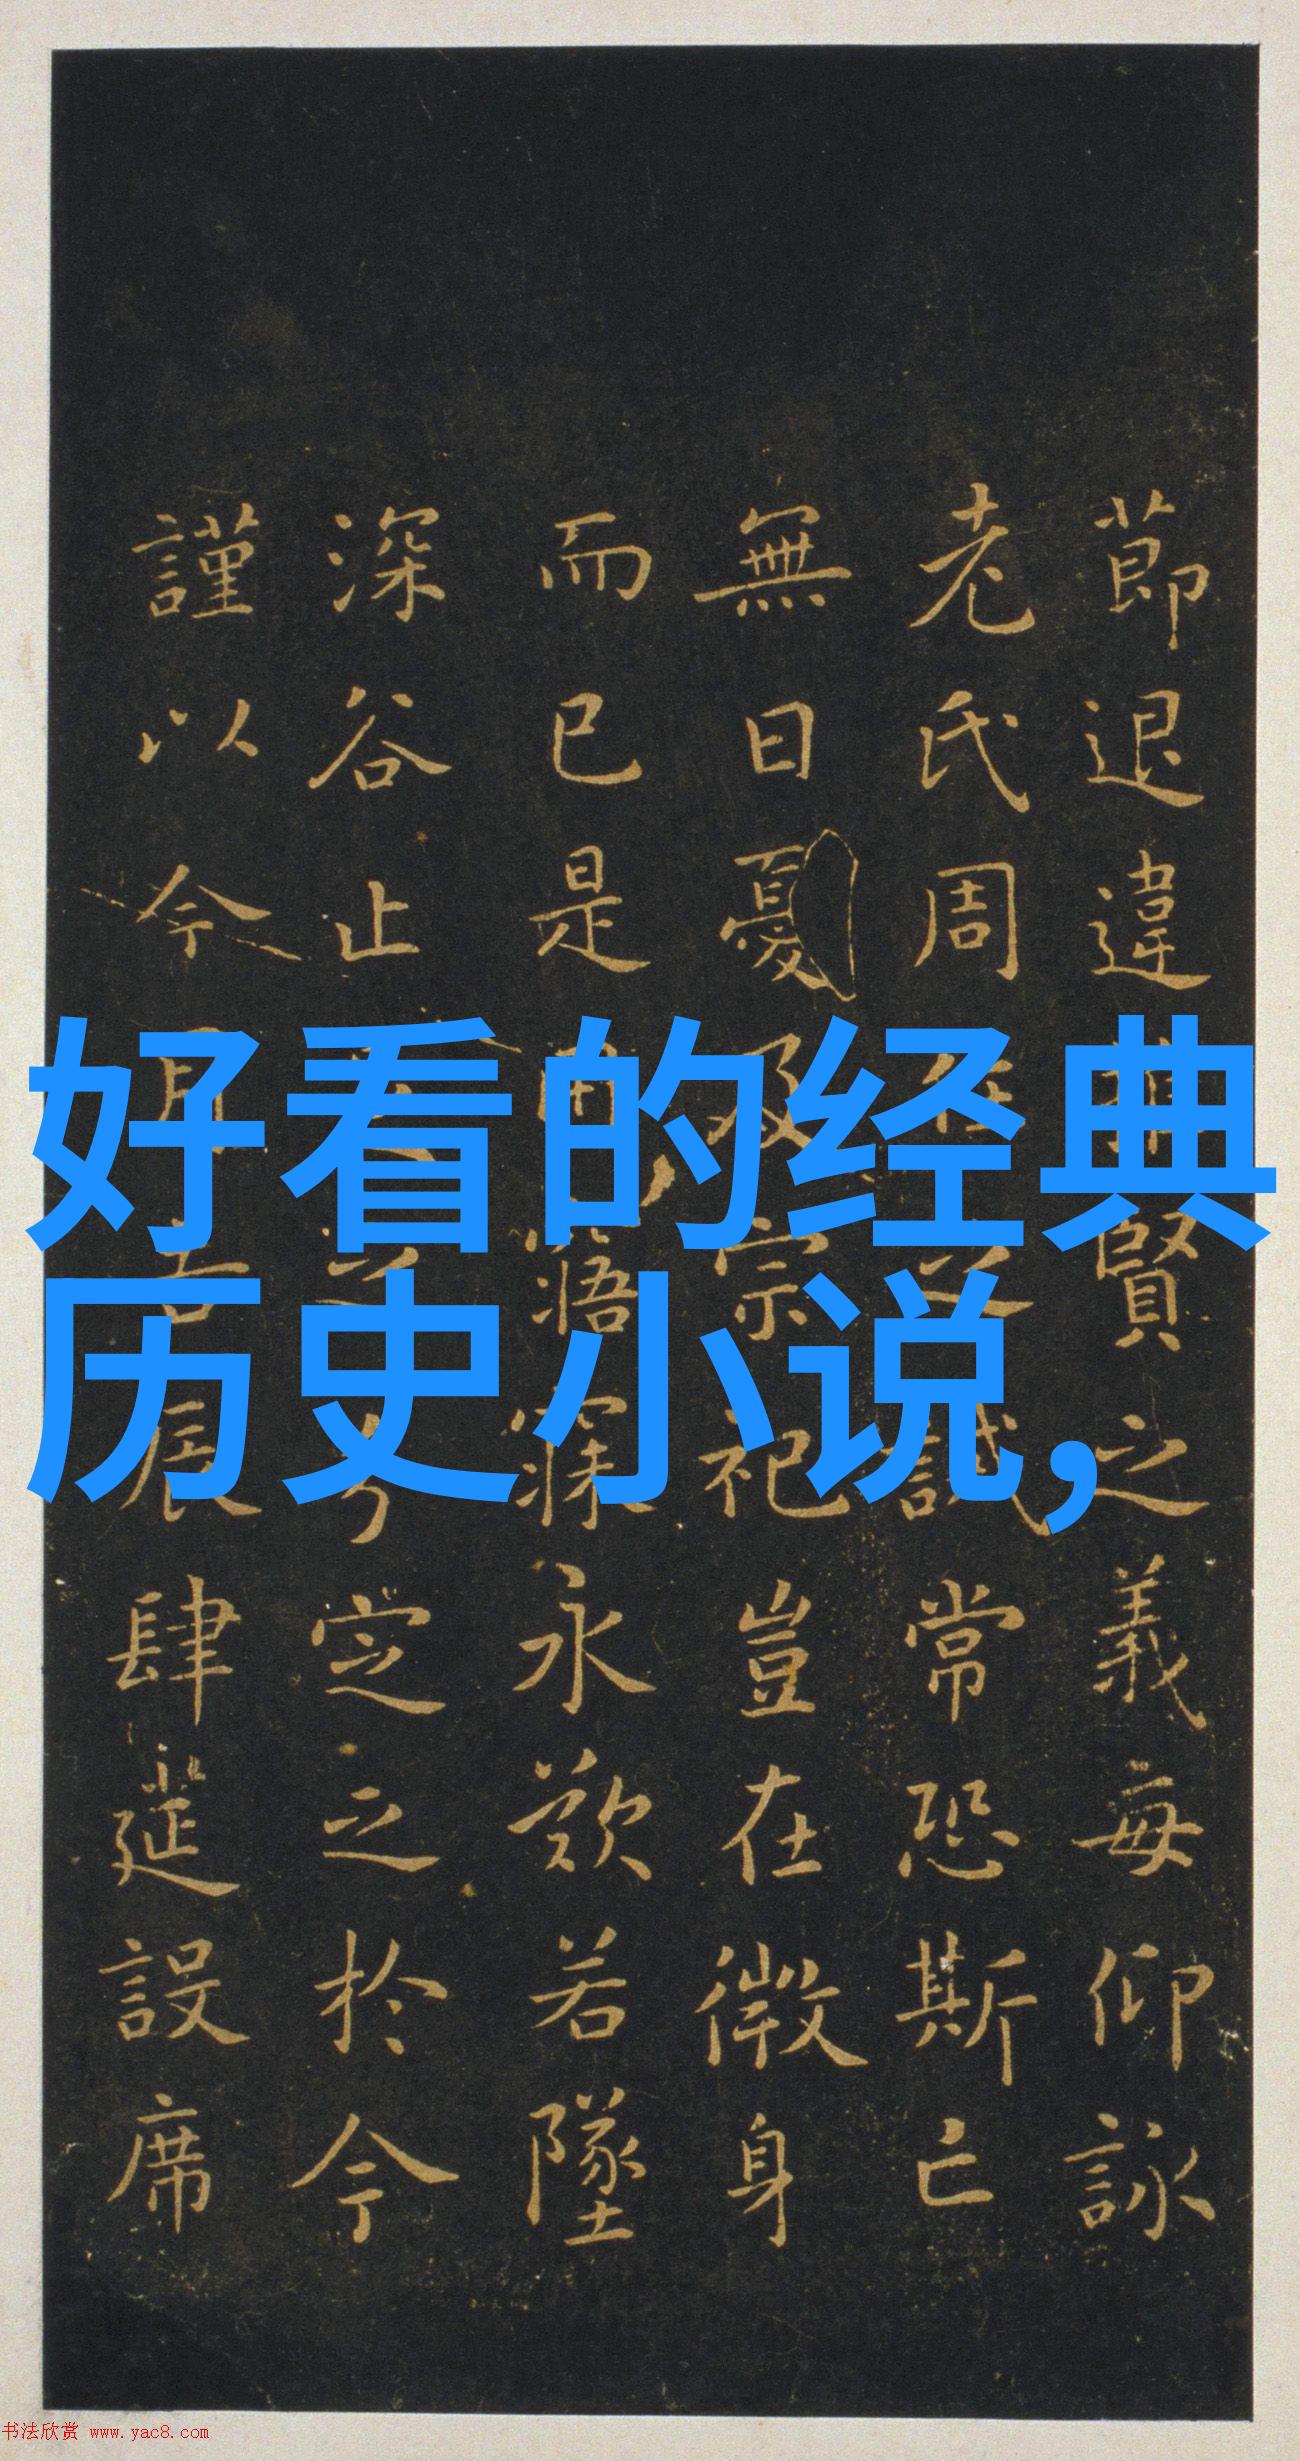 好看的经典
历史小说，
莭退違推賢之義每仰詠
老氏周任之誡常恐斯亡
無日憂及宗祀豈在微身
而已是用寤寐永歎若墜
深谷止之分定之於今
謹以今月吉辰肆筵設席
书法欣赏 www.yac8.com